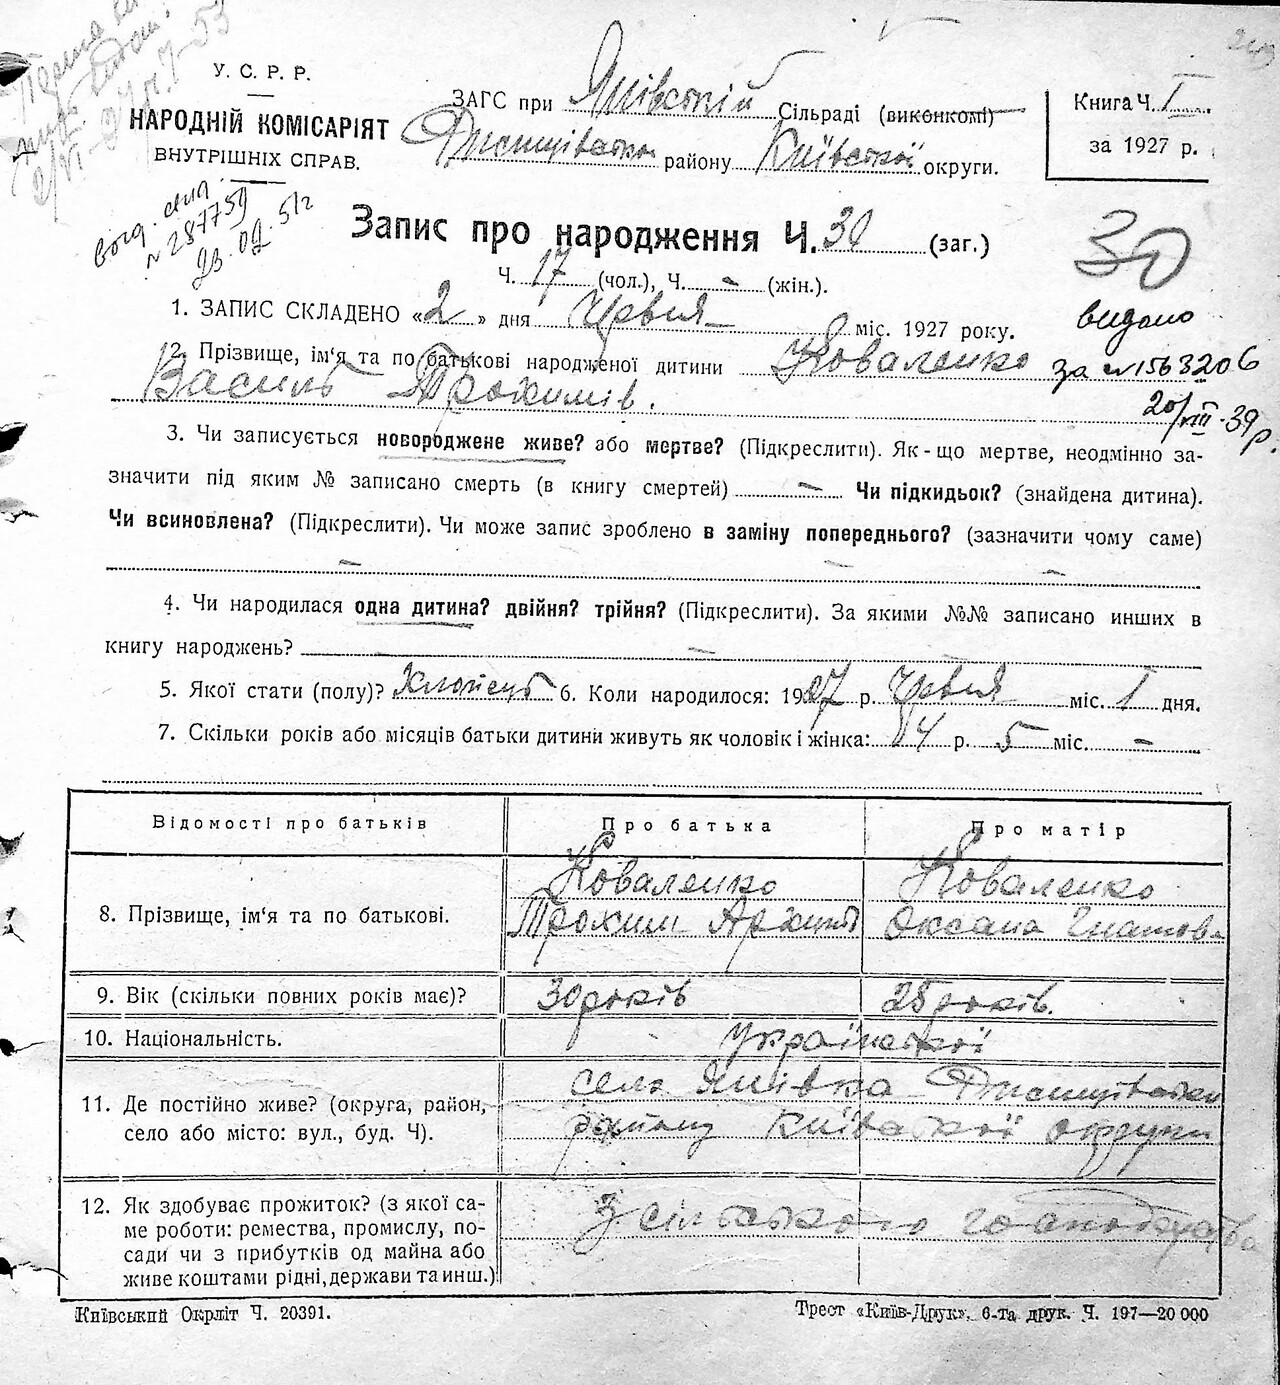 У. С. Р. Р.
НАРОДНІЙ КОМІСАРІЯТ
ВНУТРІШНІХ СПРАВ.
ЗАГС при Янівській Сільраді (виконкомі)
району Київської округи.
Книга Ч. I
за 1927 р.
№ 287759
23.02.51г
Запис про народження Ч. 30 (заг.)
30
Ч. 17 (чол.), Ч. - (жін.).
1. ЗАПИС СКЛАДЕНО «2» дня Червня міс. 1927 року.
видано
за №1563206
20/VIII-39р.
2. Прізвище, ім‘я та по батькові народженої дитини Коваленко
Василь Трохимів.
3. Чи записується новороджене живе? або мертве? (Підкреслити). Як-що мертве, неодмінно за-
значити під яким № записано смерть (в книгу смертей) - Чи підкидьок? (знайдена дитина).
Чи всиновлена? (Підкреслити). Чи може запис зроблено в заміну попереднього? (зазначити чому саме)
4. Чи народилася одна дитина? двійня? трійня? (Підкреслити). За якими №№ записано инших в
книгу народжень? -
5. Якої стати (полу)? Хлопець 6. Коли народилося: 1927 р. Червня міс. 1 дня.
7. Скільки років або місяців батьки дитини живуть як чоловік і жінка: 4 р. 5 міс. -
Відомості про батьків
Про батька
Про матір
8. Прізвище, ім‘я та по батькові.
Коваленко
Трохим Архипів
Коваленко
Оксана Гнатова
9. Вік (скільки повних років має)?
30 років
25 років.
10. Національність.
Української
11. Де постійно живе? (округа, район,
село або місто: вул., буд. Ч).
село Янівка
району Київської округи
12. Як здобуває прожиток? (з якої са-
ме роботи: ремества, промислу, по-
сади чи з прибутків од майна або
живе коштами рідні, держави та инш.)
З сільського господарства
Київський Окрліт Ч. 20391.
Трест «Київ-Друк», 6-та друк. Ч. 197—20 000